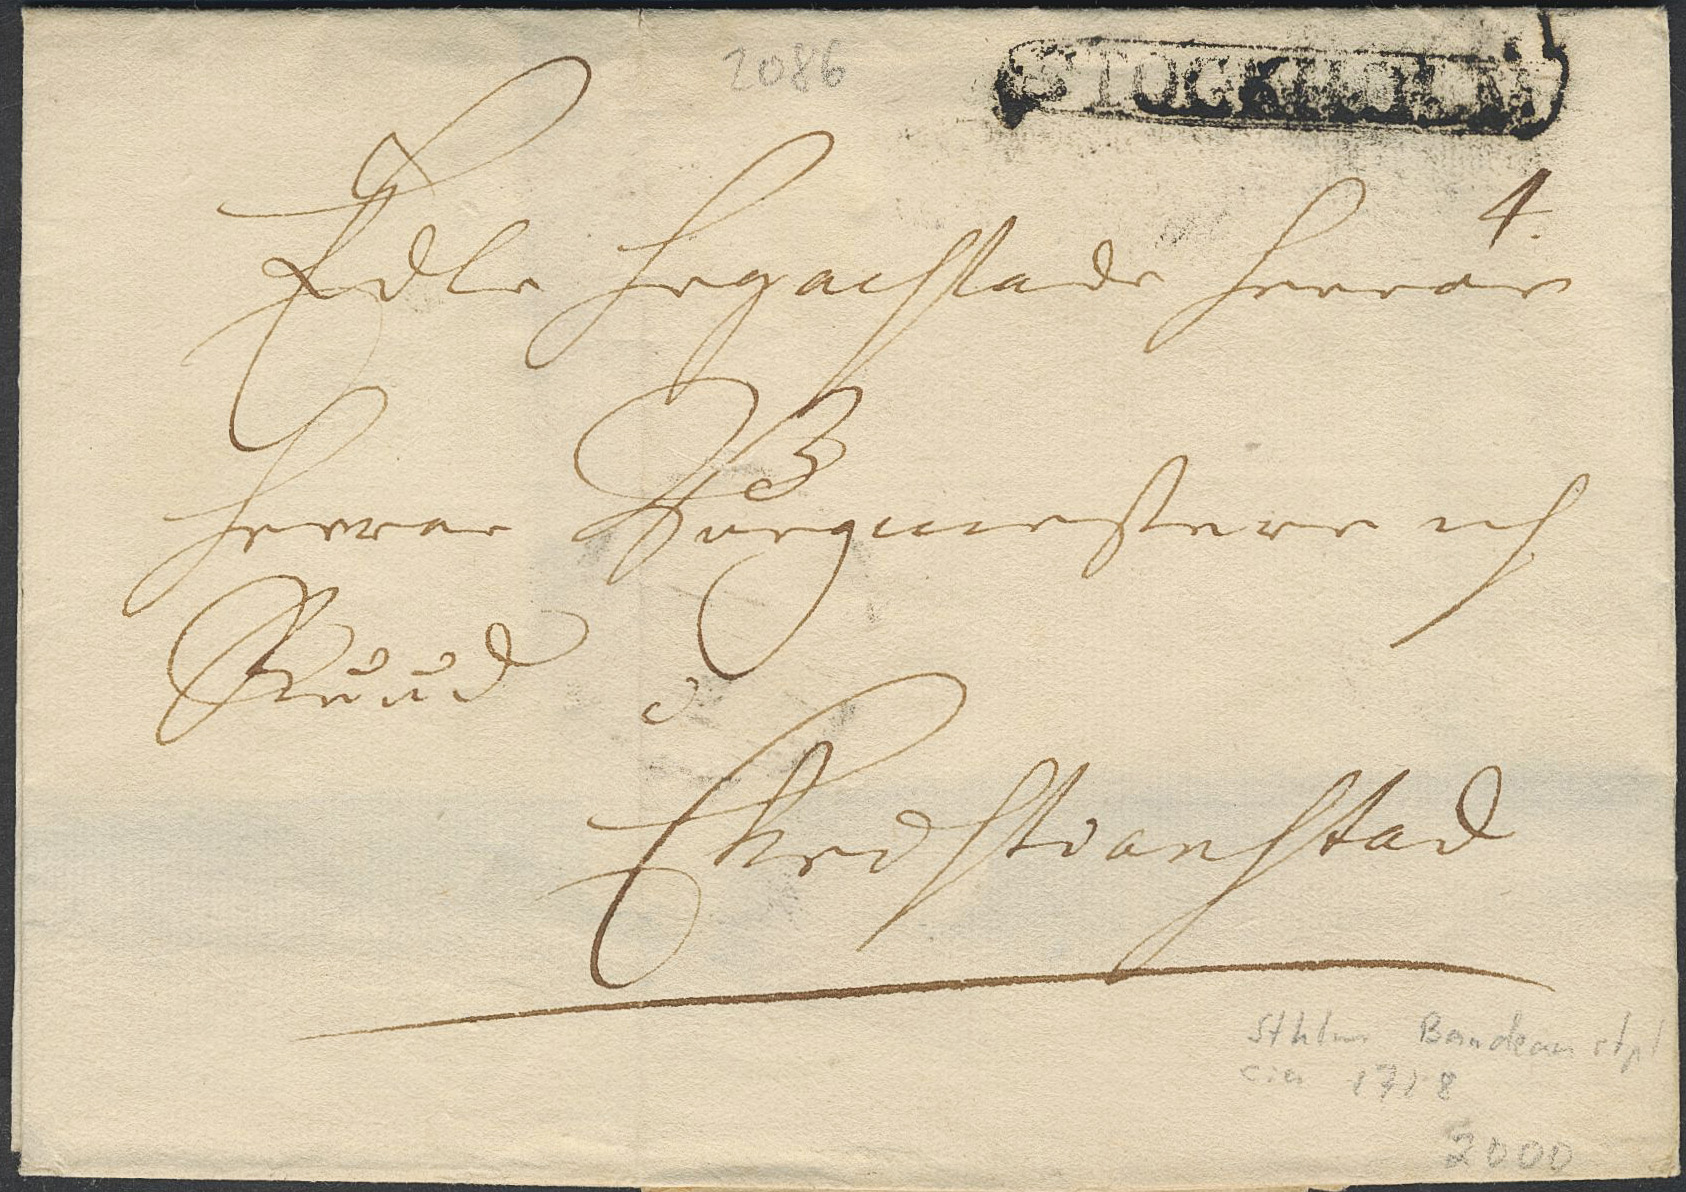 2086
STOCKHOLM
4.
Edle Högachtade Herrar
Herrar Borgmestere och
Råd
Christianstad
Sthlms Bandeau stpl
cia 1718
2000